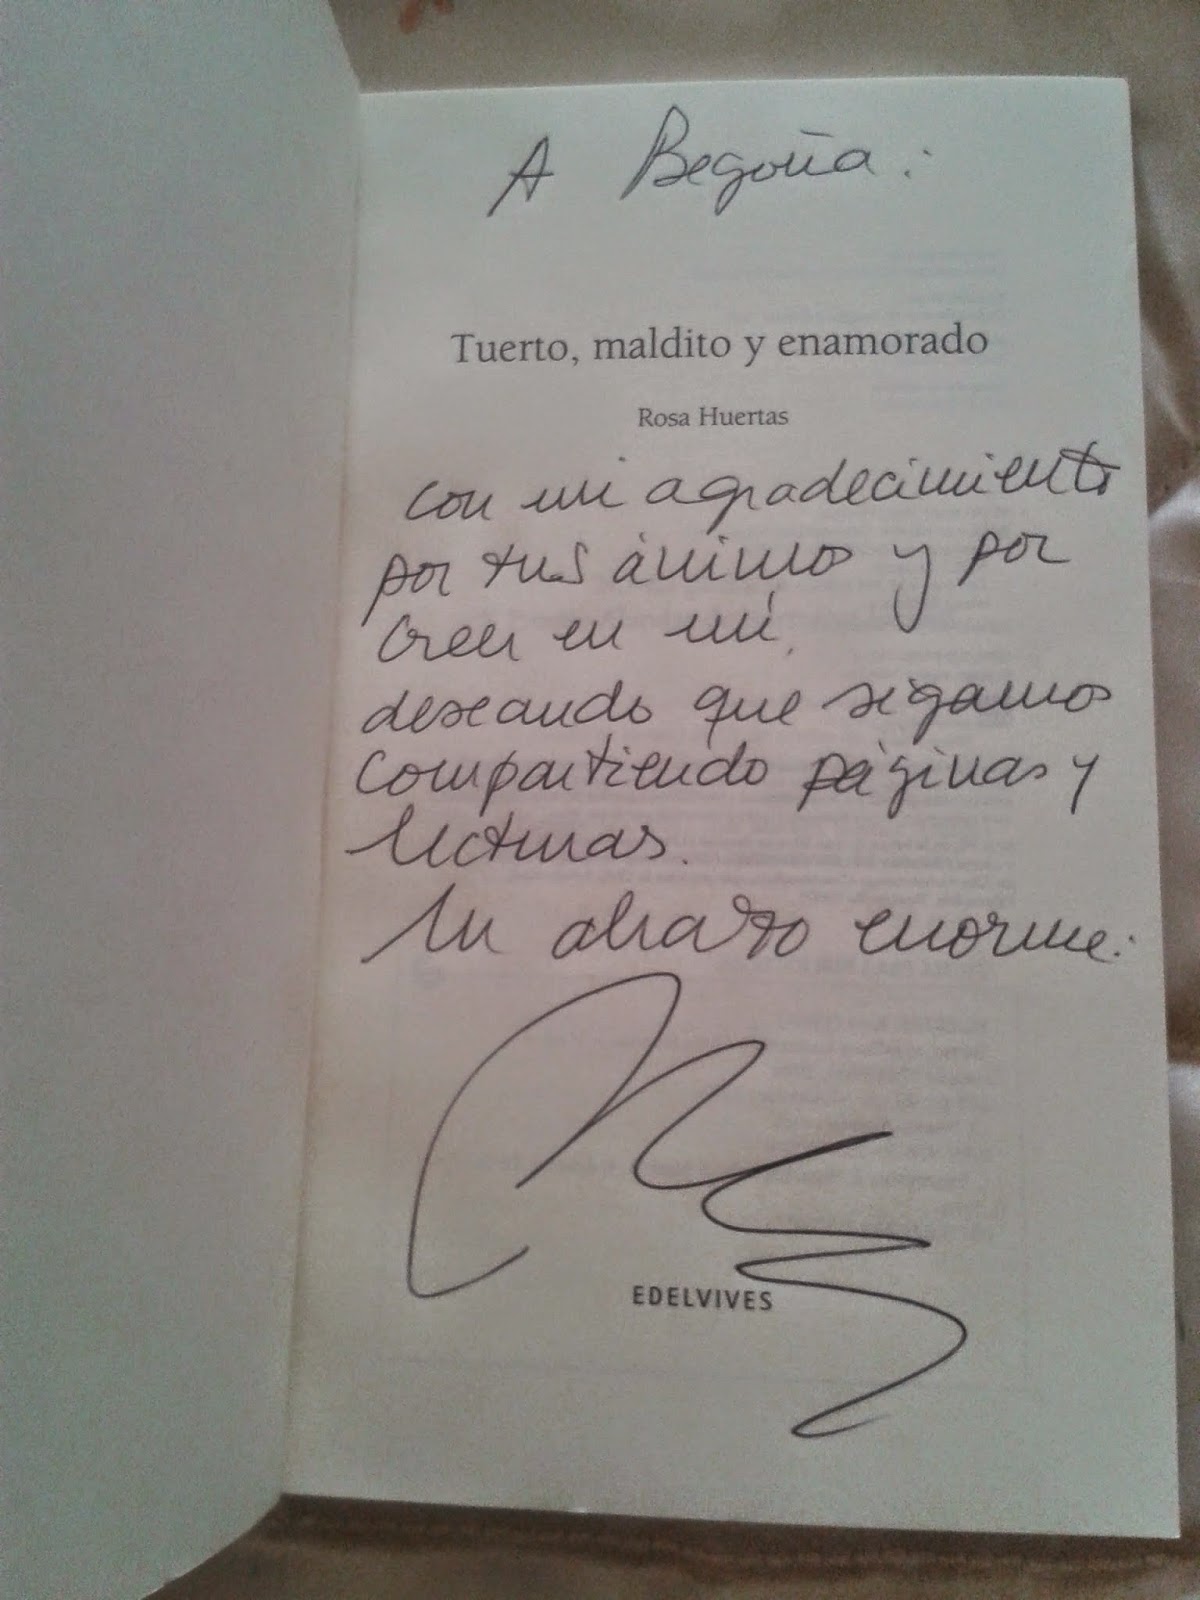 A Begoña:
Tuerto, maldito y enamorado
Rosa Huertas
con mi agradecimiento
por tus ánimos y por
creer en mí,
deseando que sigamos
compartiendo páginas y
lecturas.
Un abrazo enorme:
EDELVIVES